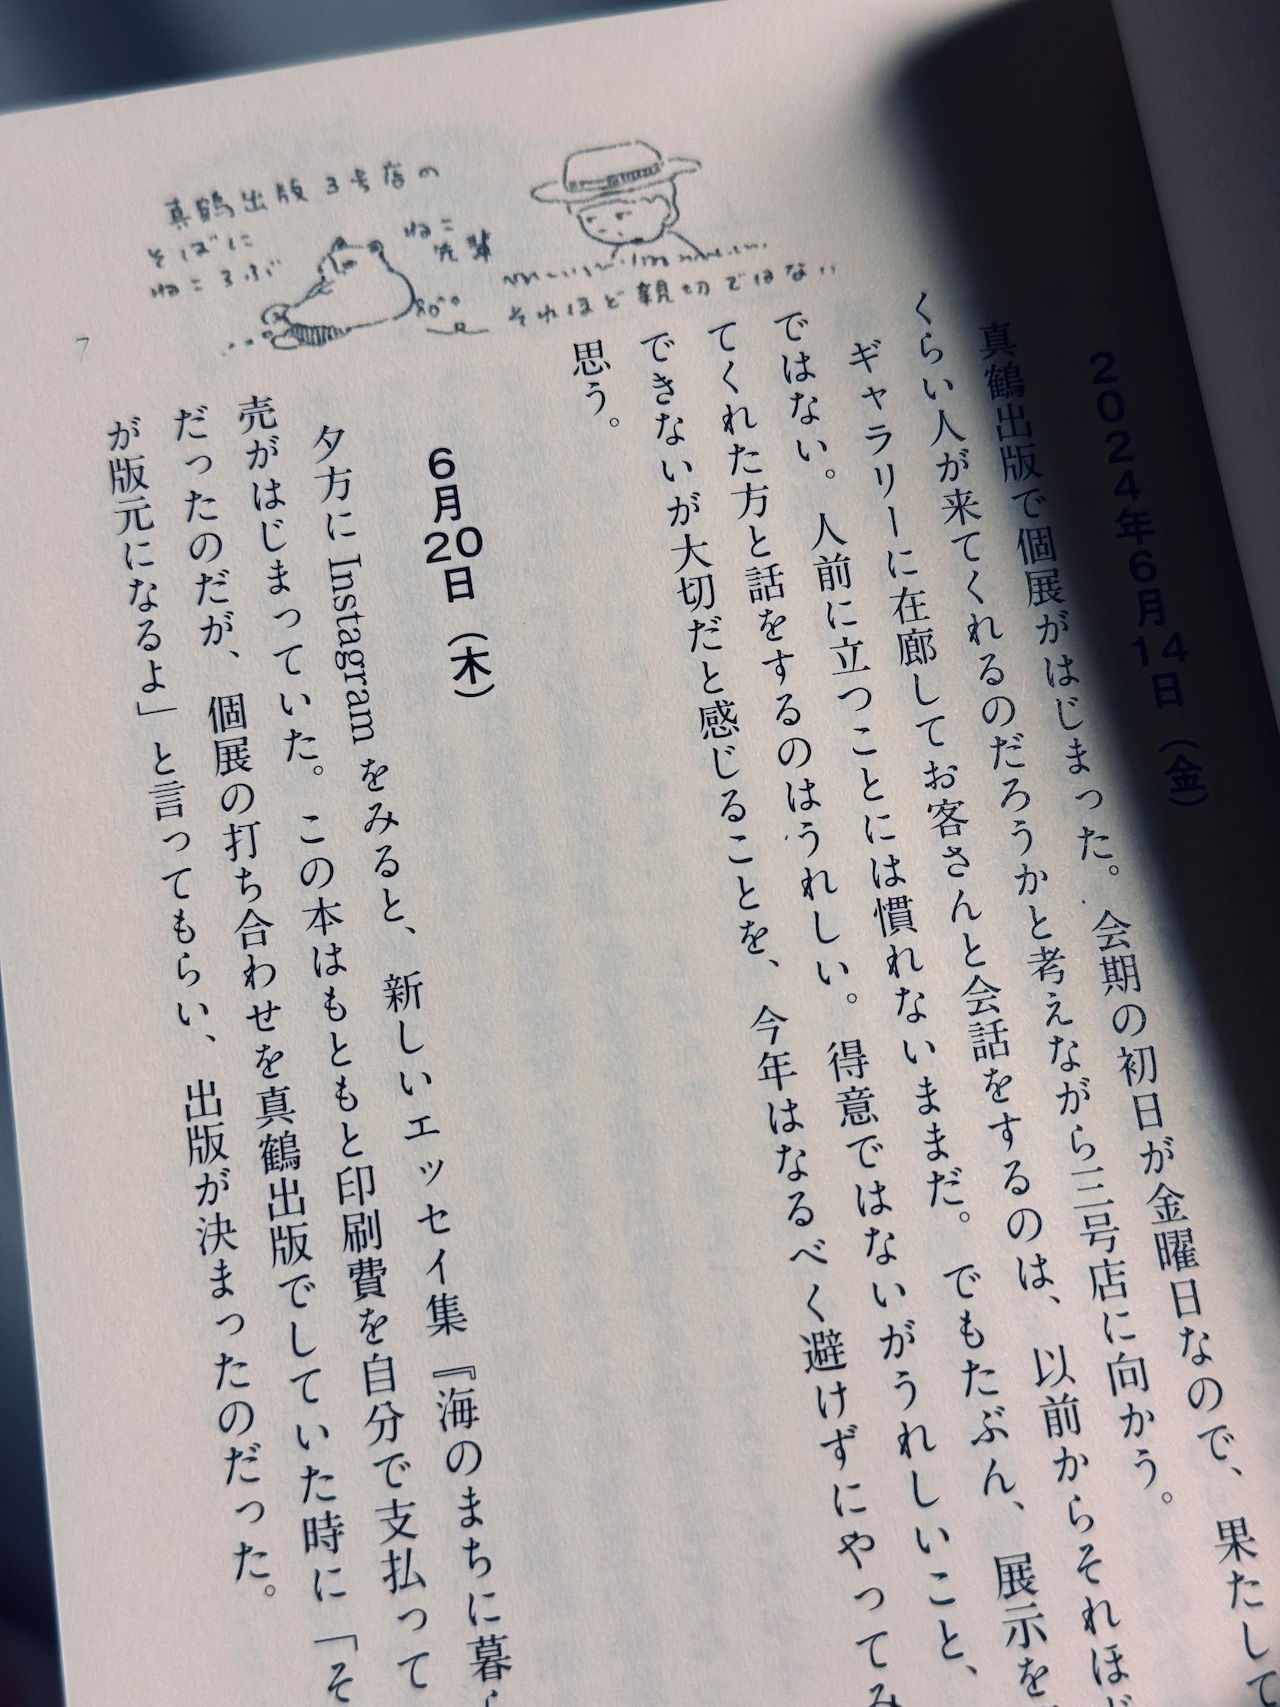 真鶴出版3号店の
そばに
ねころぶ
ねこ
先輩
それほど親切ではない
2024年6月14日（金）
真鶴出版で個展がはじまった。会期の初日が金曜日なので、果たして
くらい人が来てくれるのだろうかと考えながら三号店に向かう。
ギャラリーに在廊してお客さんと会話をするのは、以前からそれほど
ではない。人前に立つことには慣れないままだ。でもたぶん、展示を
てくれた方と話をするのはうれしい。得意ではないがうれしいこと、
できないが大切だと感じることを、今年はなるべく避けずにやってみ
思う。
6月20日（木）
夕方にInstagramをみると、新しいエッセイ集『海のまちに暮ら
売がはじまっていた。この本はもともと印刷費を自分で支払って
だったのだが、個展の打ち合わせを真鶴出版でしていた時に「そ
が版元になるよ」と言ってもらい、出版が決まったのだった。
7